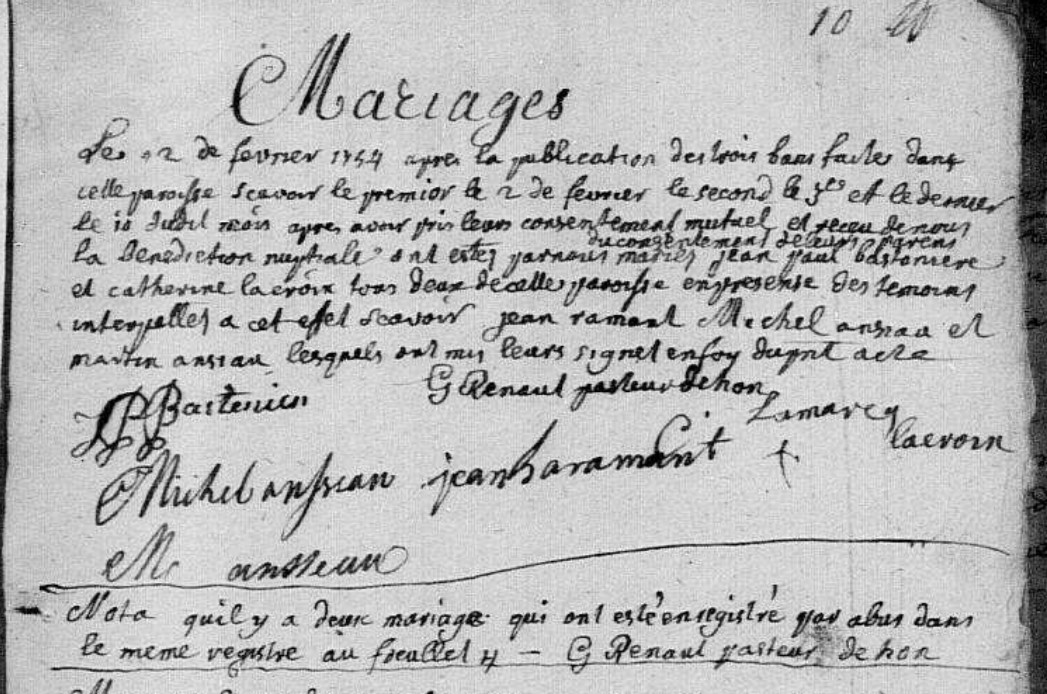 10
Mariages
Le 12 de fevrier 1754 apres la publication des trois bans faite dans
cette paroisse scavoir le premier le 2 de fevrier le second le 3es et le dernier
le 10 dudit mois apres avoir pris leurs consentement mutuel et receu de nous
du consentement de leurs parens
la benediction nuptiale ont estes par nous mariés jean paul bastoniere
et catherine lacroix tous deux de cette paroisse en presense des temoins
interpellés a cet effet scavoir jean ramant Michel ansiau et
martin ansiau lesquels ont mis leurs signet en foy du pnt acte
JP Bastenien G Renaut pasteur de hon
Lamarcq
lacroix
Michel anssean jean haramant +
M ansseau
Nota quil y a deux mariage qui ont esté enregistré par abus dans
le meme registre au feuillet 4 — G Renaut pasteur de hon